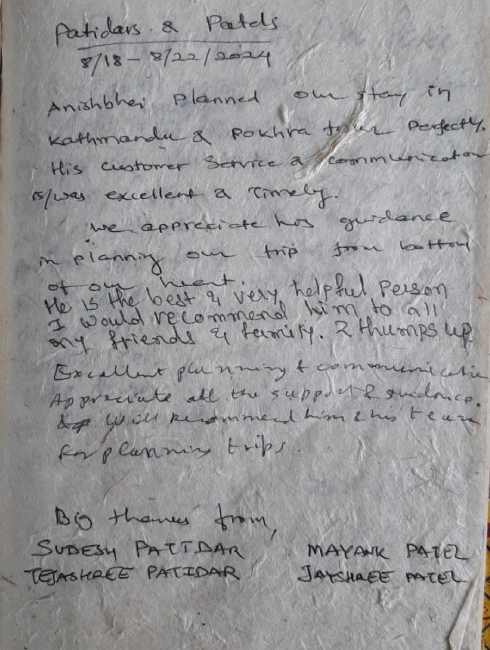 Patidars & Patels
8/18 - 8/22/2024
Anishbhai Planned our stay in
Kathmandu & Pokhra tour Perfectly.
His Customer Service & communication
is/was excellent & Timely.
We appreciate his guidance
in planning our trip from bottom
of our heart.
He is the best & very helpful person
I would recommend him to all
my friends & family. 2 thumps up
Excellent planning & communication
Appreciate all the support & guidance.
Will recommend him & his team
for planning trips.
Big thanks from,
SUDESH PATIDAR MAYANK PATEL
TEJASHREE PATIDAR JAYSHREE PATEL